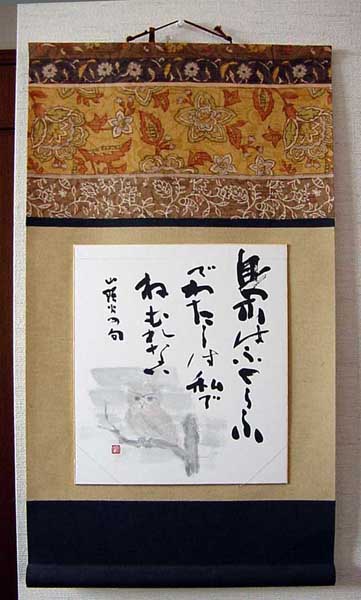 梟はふくろふ
でわたしは私で
ねむれない
山頭火の句